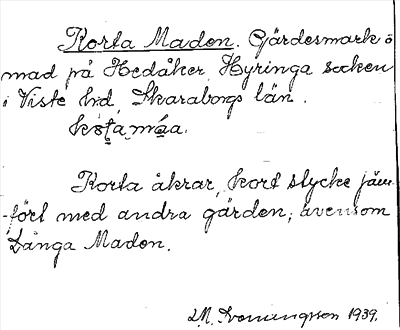 Korta Maden. Gärdesmark o
mad på Hedåker, Hyringa socken
i Viste hd, Skaraborgs län.
kɷta måa.
Korta åkrar, kort stycke jäm-
fört med andra gärden; ävensom
Långa Maden.
1939.